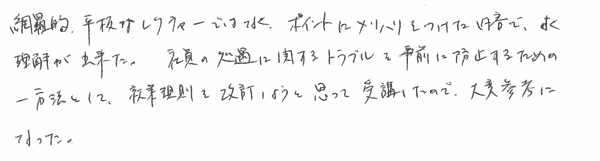 網羅的、平板なレクチャーではなく、ポイントにメリハリをつけた内容で、よく
理解が出来た。 社員の処遇に関するトラブルを事前に防止するための
一方法として、就業規則を改訂しようと思って受講したので、大変参考に
なった。